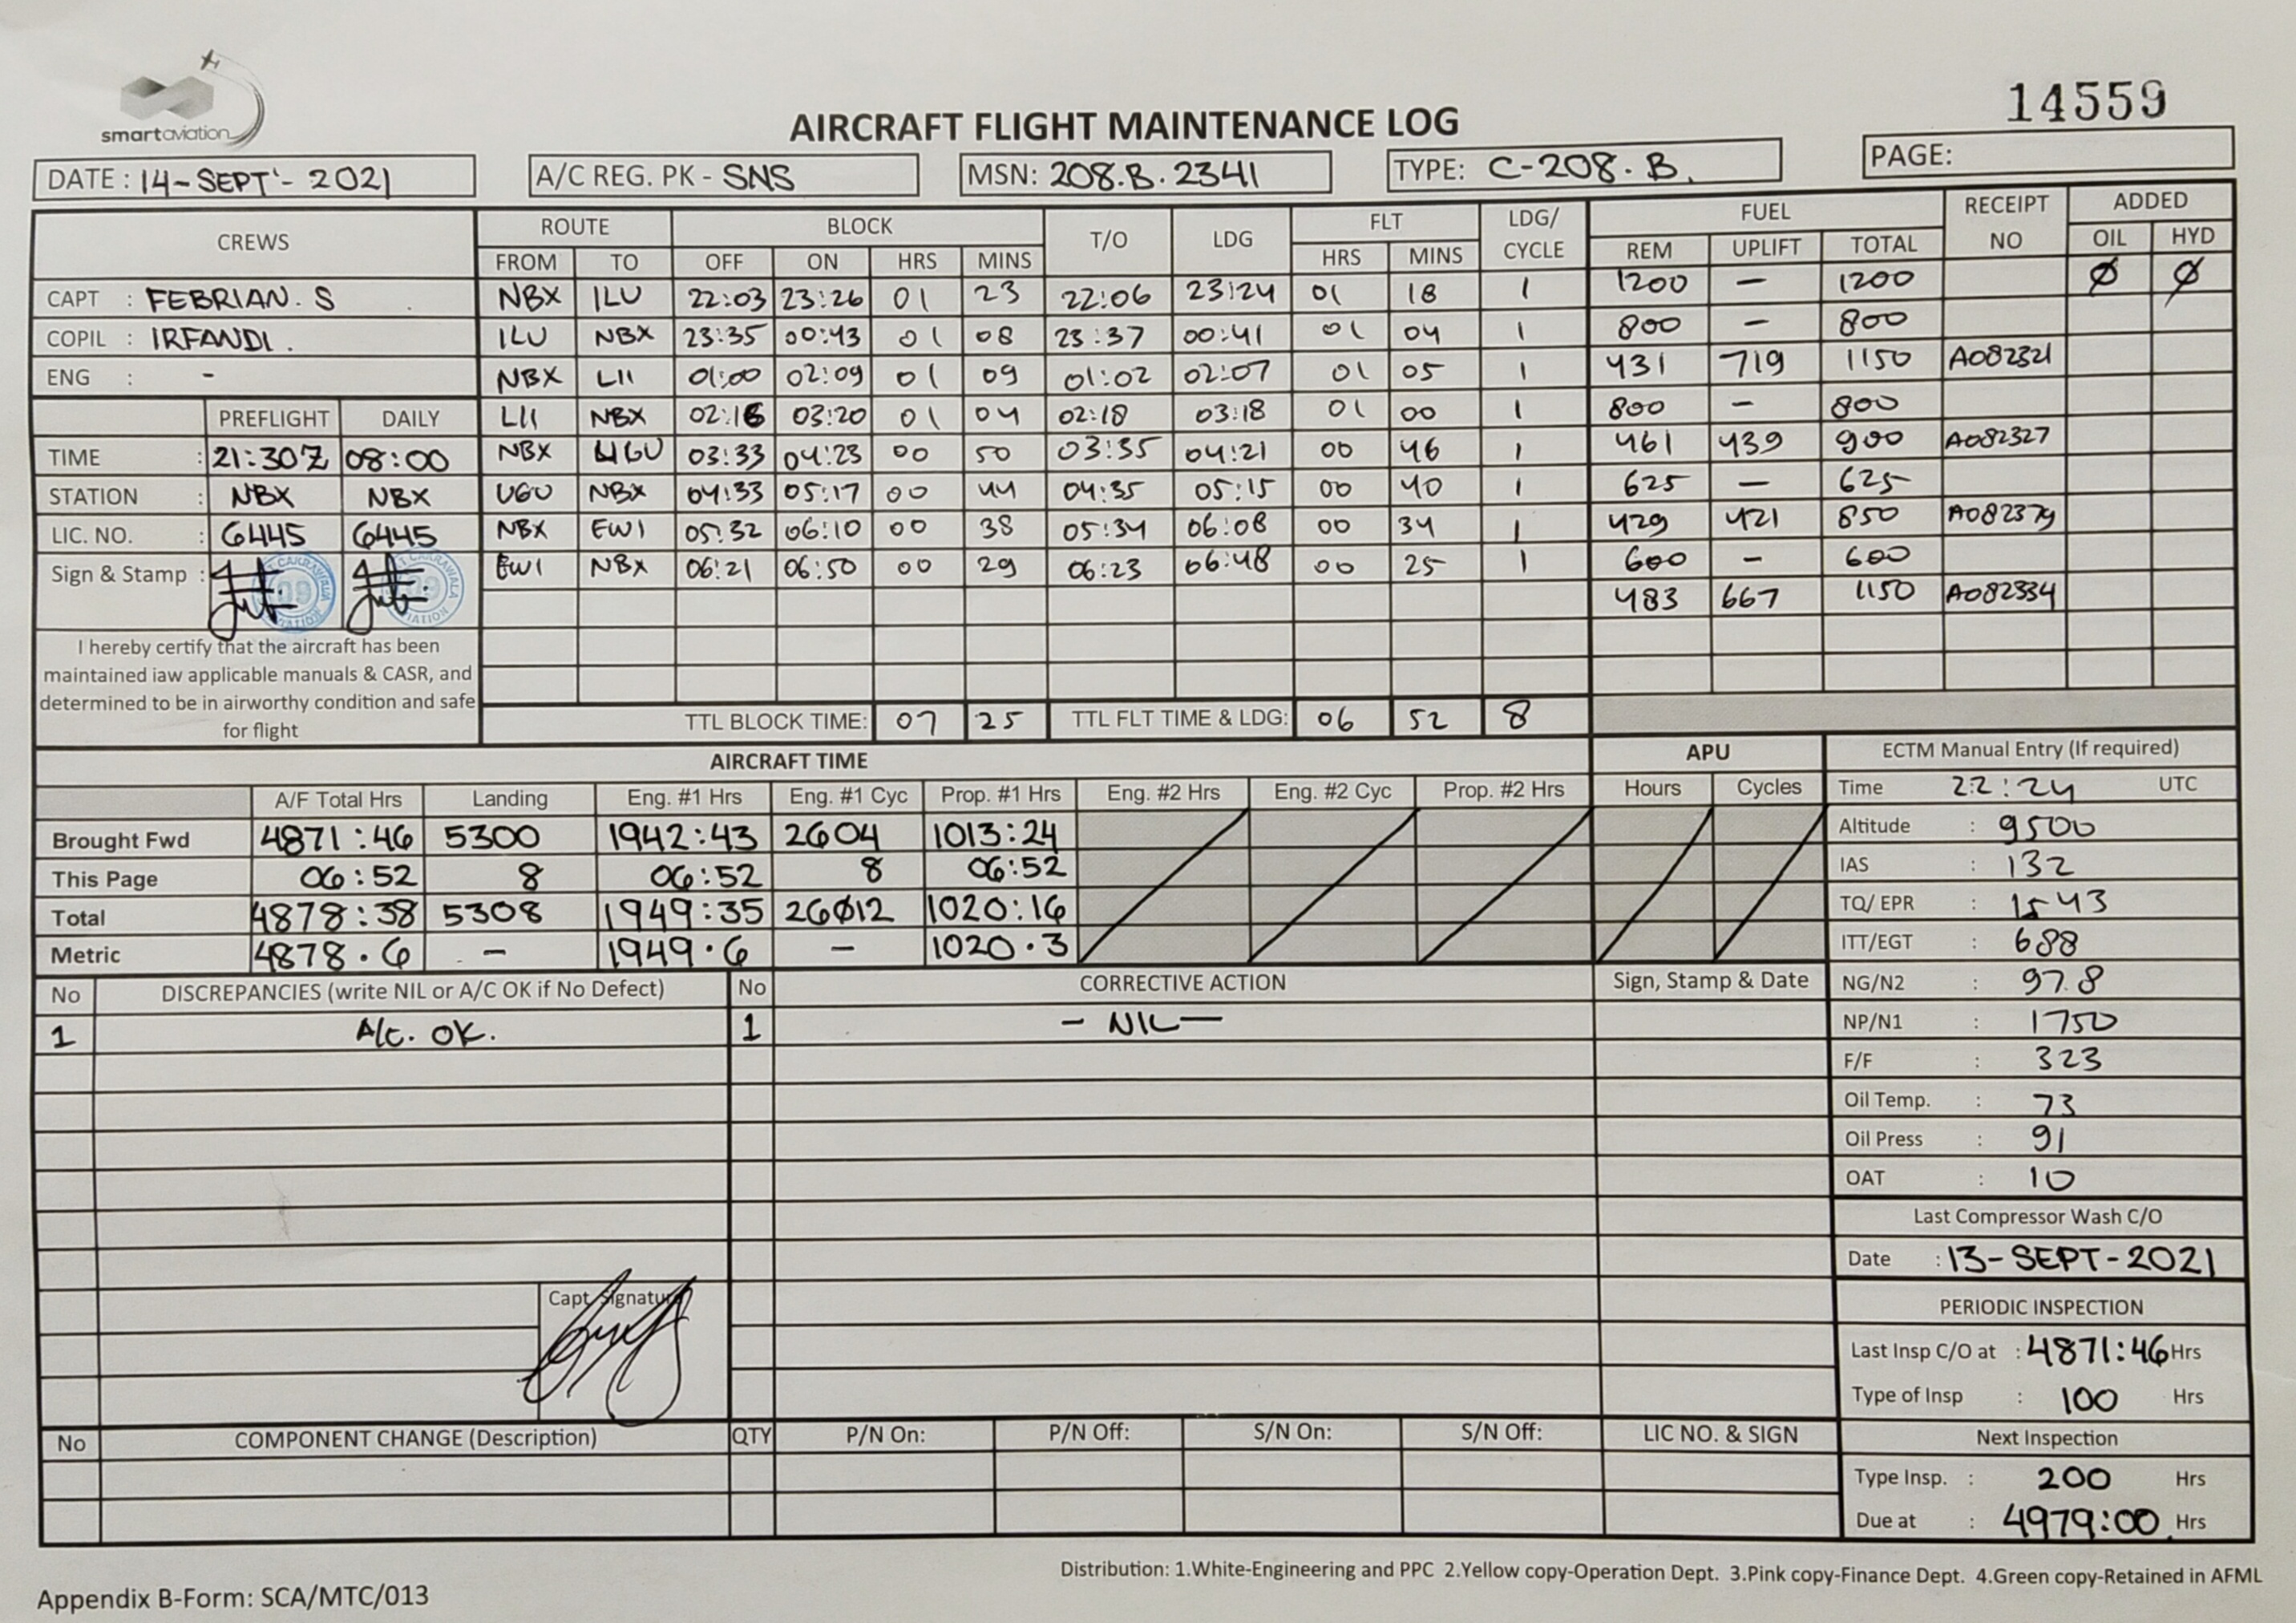 smartaviation
14559
AIRCRAFT FLIGHT MAINTENANCE LOG
DATE : 14-SEPT'- 2021 A/C REG. PK - SNS MSN: 208.B.2341 TYPE: C-208.B. PAGE:
CREWS ROUTE BLOCK T/O LDG FLT LDG/ CYCLE FUEL RECEIPT NO ADDED
FROM TO OFF ON HRS MINS HRS MINS REM UPLIFT TOTAL OIL HYD
CAPT : FEBRIAN. S NBX ILU 22:03 23:26 01 23 22:06 23:24 01 18 1 1200 - 1200 Ø Ø
COPIL : IRFANDI. ILU NBX 23:35 00:43 01 08 23:37 00:41 01 04 1 800 - 800
ENG : - NBX LII 01:00 02:09 01 09 01:02 02:07 01 05 1 431 719 1150 A082321
PREFLIGHT DAILY LII NBX 02:16 03:20 01 04 02:18 03:18 01 00 1 800 - 800
TIME : 21:30Z 08:00 NBX UGU 03:33 04:23 00 50 03:35 04:21 00 46 1 461 439 900 A082327
STATION : NBX NBX UGU NBX 04:33 05:17 00 44 04:35 05:15 00 40 1 625 - 625
LIC. NO. : 6445 6445 NBX EWI 05:32 06:10 00 38 05:34 06:08 00 34 1 429 421 850 A082379
Sign & Stamp : EWI NBX 06:21 06:50 00 29 06:23 06:48 00 25 1 600 - 600
483 667 1150 A082334
I hereby certify that the aircraft has been
maintained iaw applicable manuals & CASR, and
determined to be in airworthy condition and safe
for flight
TTL BLOCK TIME: 07 25 TTL FLT TIME & LDG: 06 52 8
AIRCRAFT TIME APU ECTM Manual Entry (If required)
A/F Total Hrs Landing Eng. #1 Hrs Eng. #1 Cyc Prop. #1 Hrs Eng. #2 Hrs Eng. #2 Cyc Prop. #2 Hrs Hours Cycles Time 22:24 UTC
Brought Fwd 4871:46 5300 1942:43 2604 1013:24 Altitude : 9500
This Page 06:52 8 06:52 8 06:52 IAS : 132
Total 4878:38 5308 1949:35 26Ø12 1020:16 TQ/ EPR : 1543
Metric 4878.6 - 1949.6 - 1020.3 ITT/EGT : 688
No DISCREPANCIES (write NIL or A/C OK if No Defect) No CORRECTIVE ACTION Sign, Stamp & Date NG/N2 : 97.8
1 A/c. OK. 1 - NIL - NP/N1 : 1750
F/F : 323
Oil Temp. : 73
Oil Press : 91
OAT : 10
Last Compressor Wash C/O
Date : 13-SEPT-2021
Capt. Signature
PERIODIC INSPECTION
Last Insp C/O at : 4871:46 Hrs
Type of Insp : 100 Hrs
No COMPONENT CHANGE (Description) QTY P/N On: P/N Off: S/N On: S/N Off: LIC NO. & SIGN Next Inspection
Type Insp. : 200 Hrs
Due at : 4979:00 Hrs
Distribution: 1.White-Engineering and PPC 2.Yellow copy-Operation Dept. 3.Pink copy-Finance Dept. 4.Green copy-Retained in AFML
Appendix B-Form: SCA/MTC/013